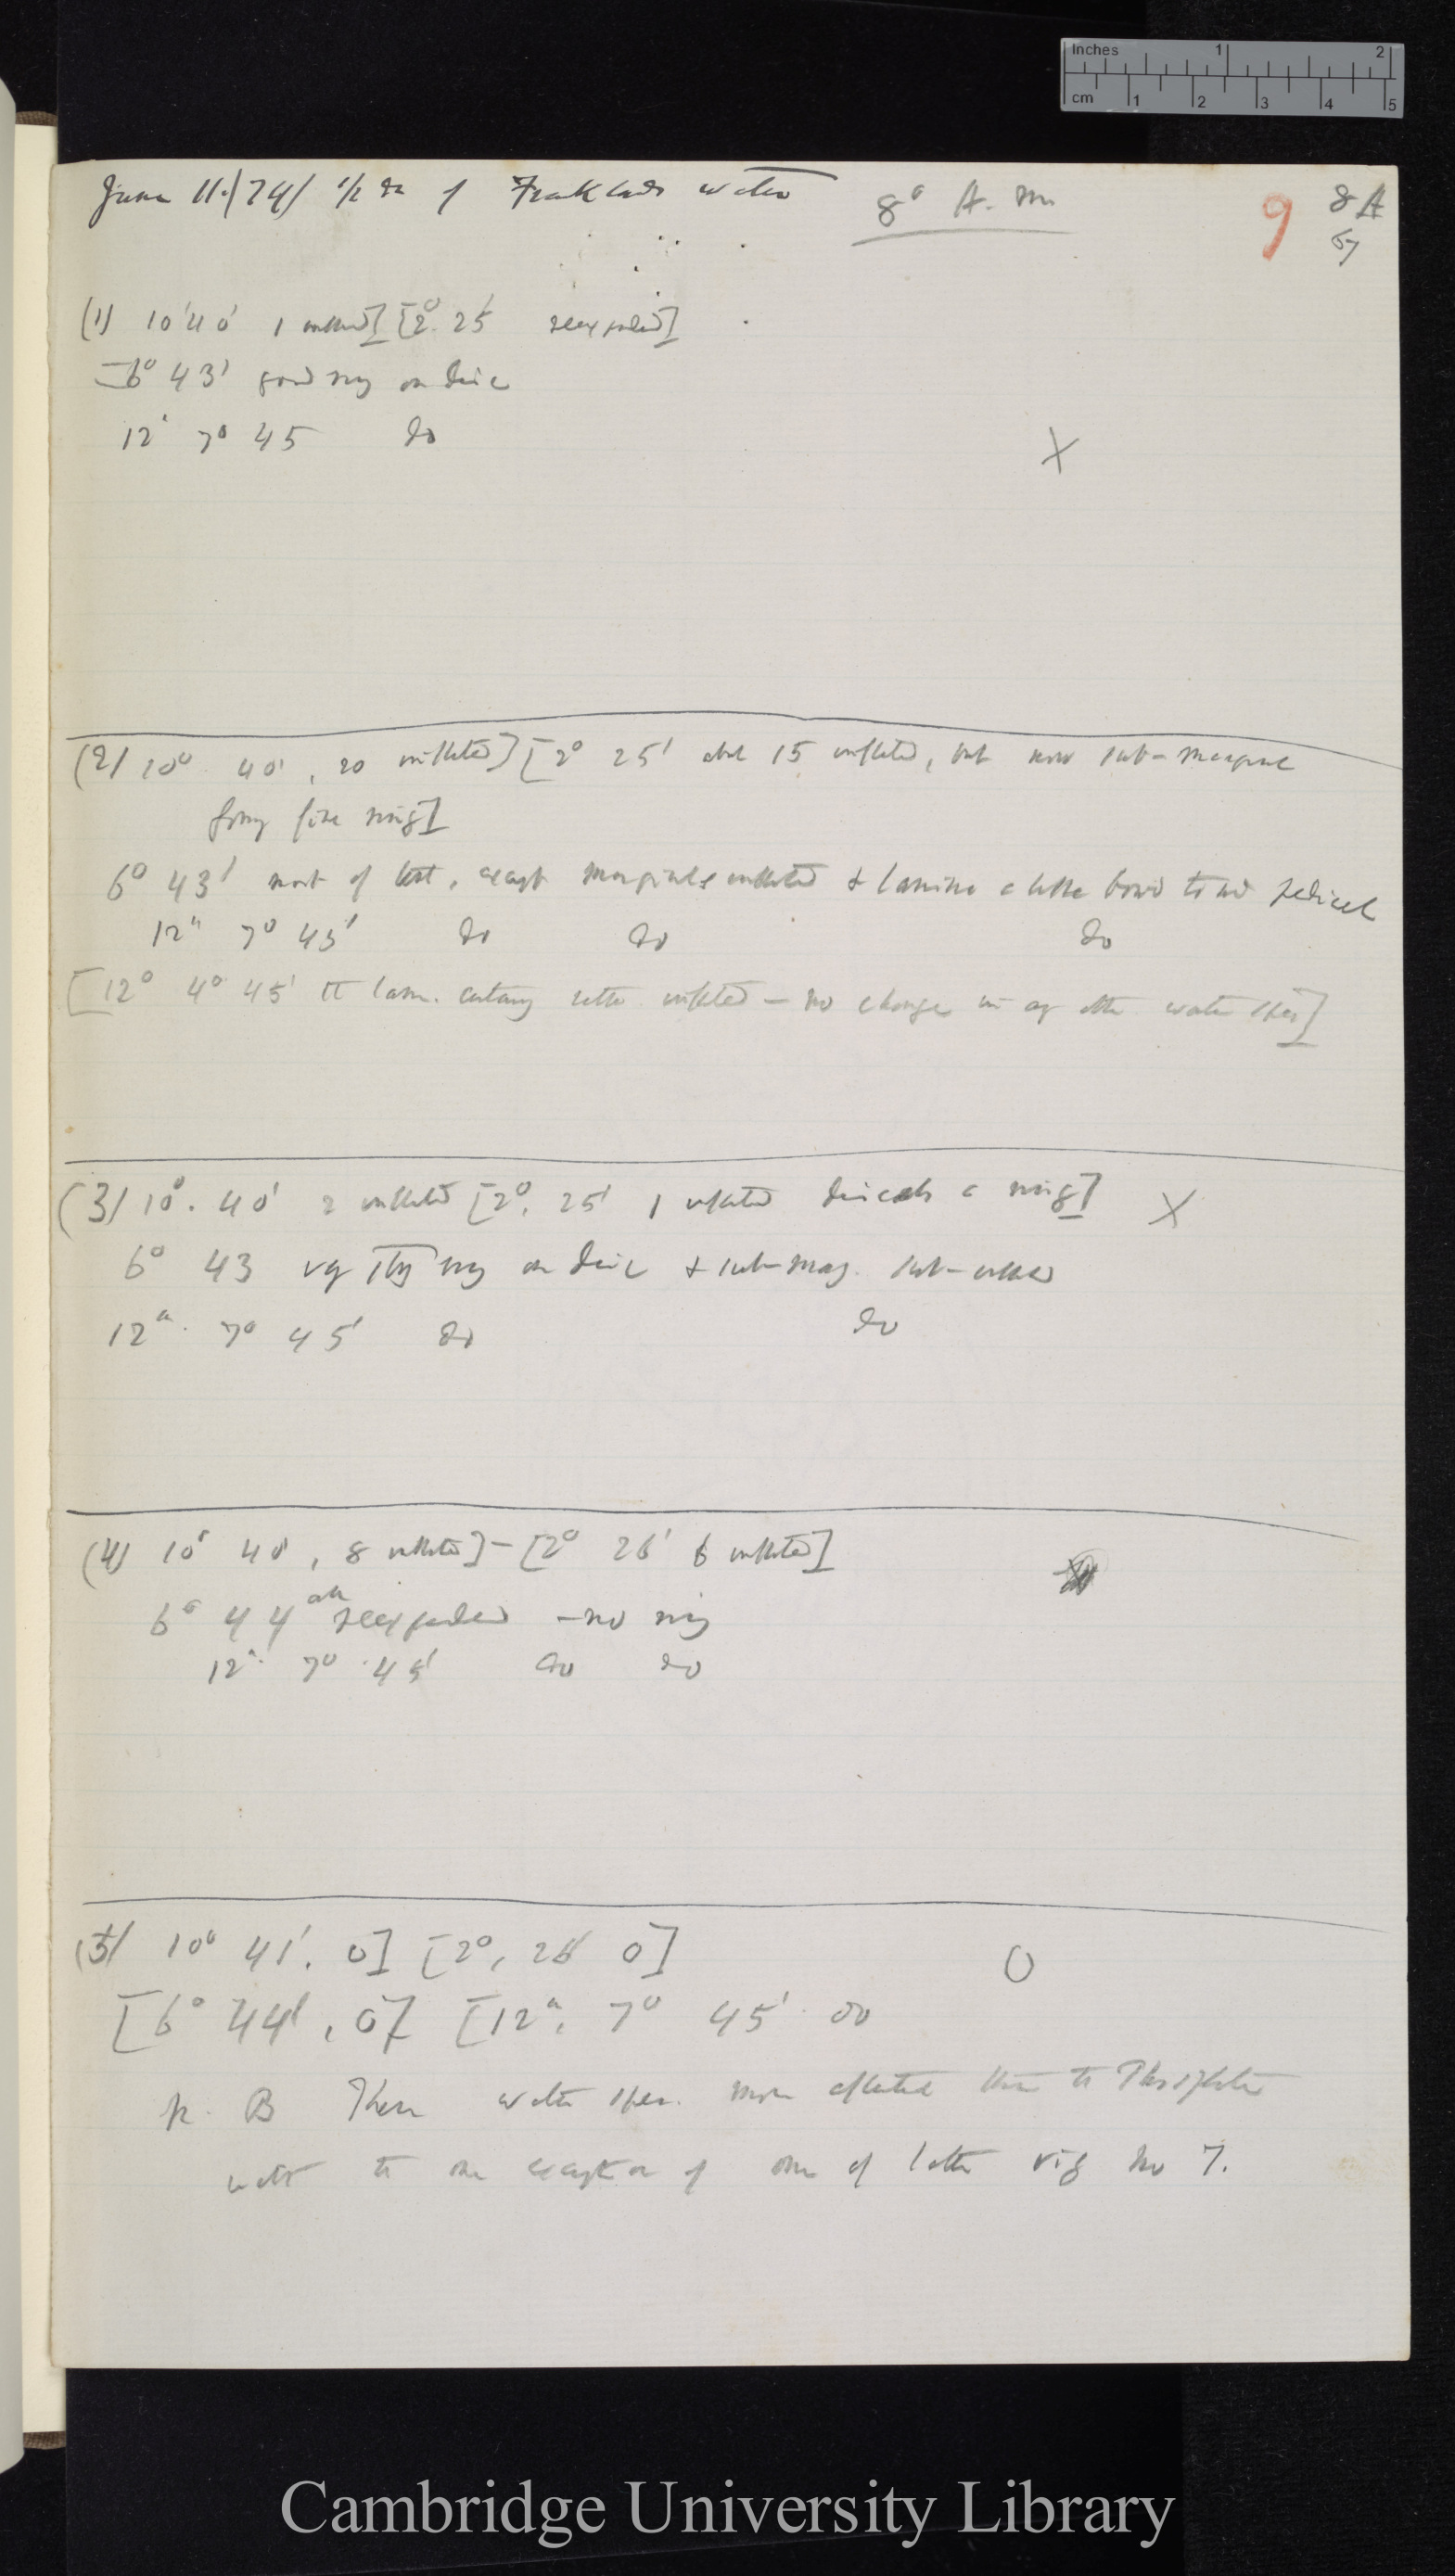 June 11./74/ 1/2 oz of Franklands water 8° A. m
9 8 A
57
(1) 10° 40' 1 inflected] [2° 25' reexpanded]
6° 43' good ring on disc
12 7° 45 do
X
(2) 10° 40', 20 inflected] [2° 25' about 15 inflected, but now sub-marginal
fine ring]
6° 43' most of tent. except marginals inflected & lamina a little bowed to pedicel
12 7° 45' do do do
[12 4° 45' lam. certainly rather inflected — no change in any other water spec]
(3) 10° 40' 2 inflected [2°, 25' 1 inflected ring]
X
6° 43 very ring on disc & sub-marg. sub-inflected
12 7° 45' do do
(4) 10° 40', 8 inflected] — [2° 26' 6 inflected]
6° 44 all reexpanded — no ring
12 7° 45' do do
(5) 10° 41'. 0] [2°, 26' 0]
0
[6° 44', 0] [12 7° 45' do
N. B These water spec. more affected than the Phosphate
with the one exception of one of latter viz No 7.
Inches 1 2
cm 1 2 3 4 5
Cambridge University Library